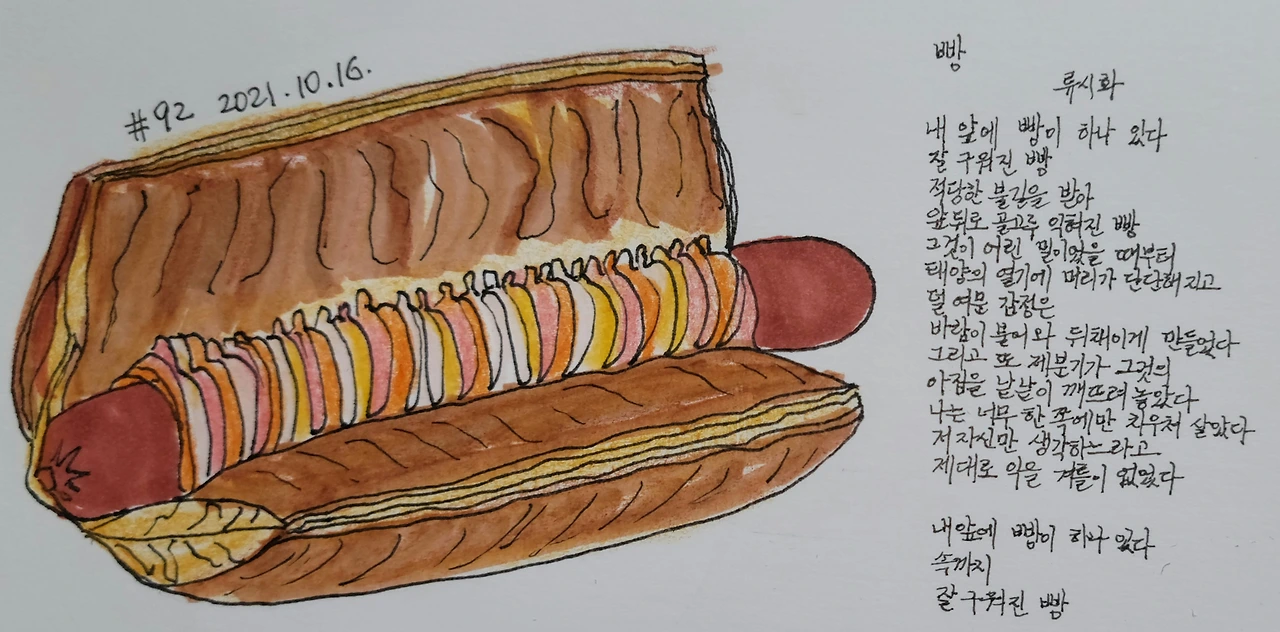 #92 2021.10.16.
빵
류시화
내 앞에 빵이 하나 있다
잘 구워진 빵
적당한 불길을 받아
앞뒤로 골고루 익혀진 빵
그것이 어린 밀이었을 때부터
태양의 열기에 머리가 단단해지고
덜 여문 감정은
바람이 불어와 뒤채이게 만들었다
그리고 또 제분기가 그것의
아집을 낱낱이 깨뜨려 놓았다
나는 너무 한 쪽에만 치우쳐 살았다
저 자신만 생각하느라고
제대로 익을 겨를이 없었다
내 앞에 빵이 하나 있다
속까지
잘 구워진 빵